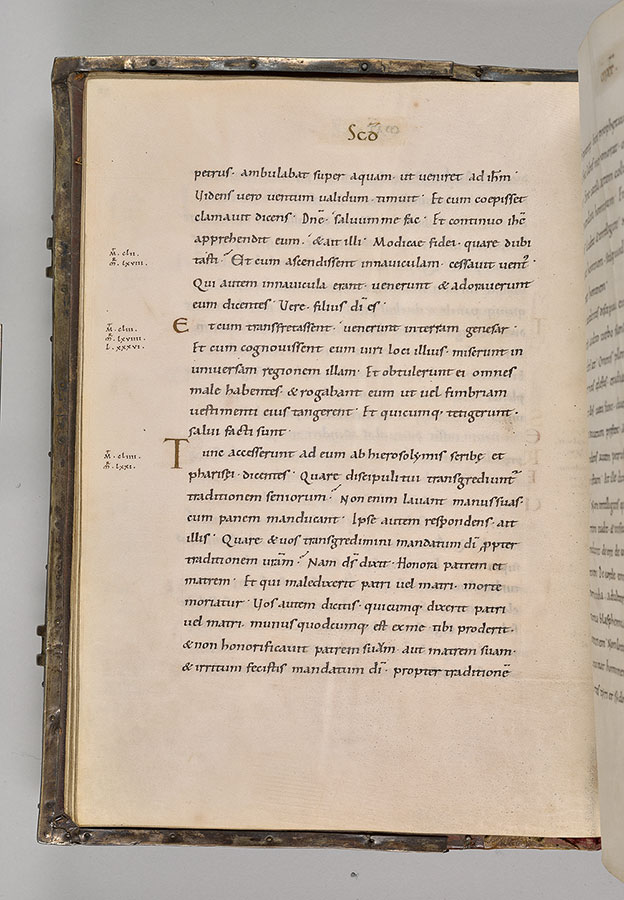 Scd̄
petrus· ambulabat super aquam· ut ueniret ad ih̄m·
Uidens uero uentum ualidum· timuit· Et cum coepisset
clamauit dicens· Dn̄e· saluum me fac· Et continuo ih̄c
apprehendit eum· & ait illi· Modicae fidei· quare dubi
tasti· Et cum ascendissent innauiculam· cessauit uent᷒·
Qui autem innauicula erant· uenerunt & adorauerunt
eum dicentes· Uere· filius dī es·
E t cum transfretassent· uenerunt interram genesar·
Et cum cognouissent eum uiri loci illius· miserunt in
uniuersam regionem illam· Et obtulerunt ei omnes
male habentes· & rogabant eum ut uel fimbriam
uestimenti eius tangerent· Et quicumq; tetigerunt·
salui facti sunt·
T unc accesserunt ad eum ab hierosolymis scribe et
pharisei· dicentes· Quare discipuli tui transgrediunt᷑
traditionem seniorum· Non enim lauant manus suas·
cum panem manducant· Ipse autem respondens· ait
illis· Quare & uos transgredimini mandatum dī ꝓpter
traditionem ur̄am· Nam ds̄ dixit· Honora patrem et
matrem· Et qui maledixerit patri uel matri· morte
moriatur· Uos autem dicitis· quicumq; dixerit patri
uel matri· munus quodcumq; est ex me tibi proderit·
& non honorificauit patrem suum· aut matrem suam·
& irritum fecistis mandatum dī· propter traditionē
m̄· clii·
m̄r· lxviii·
m̄· cliii·
m̄r· lxviiii·
l· xxxvi·
m̄· cliiii·
m̄r· lxxi·